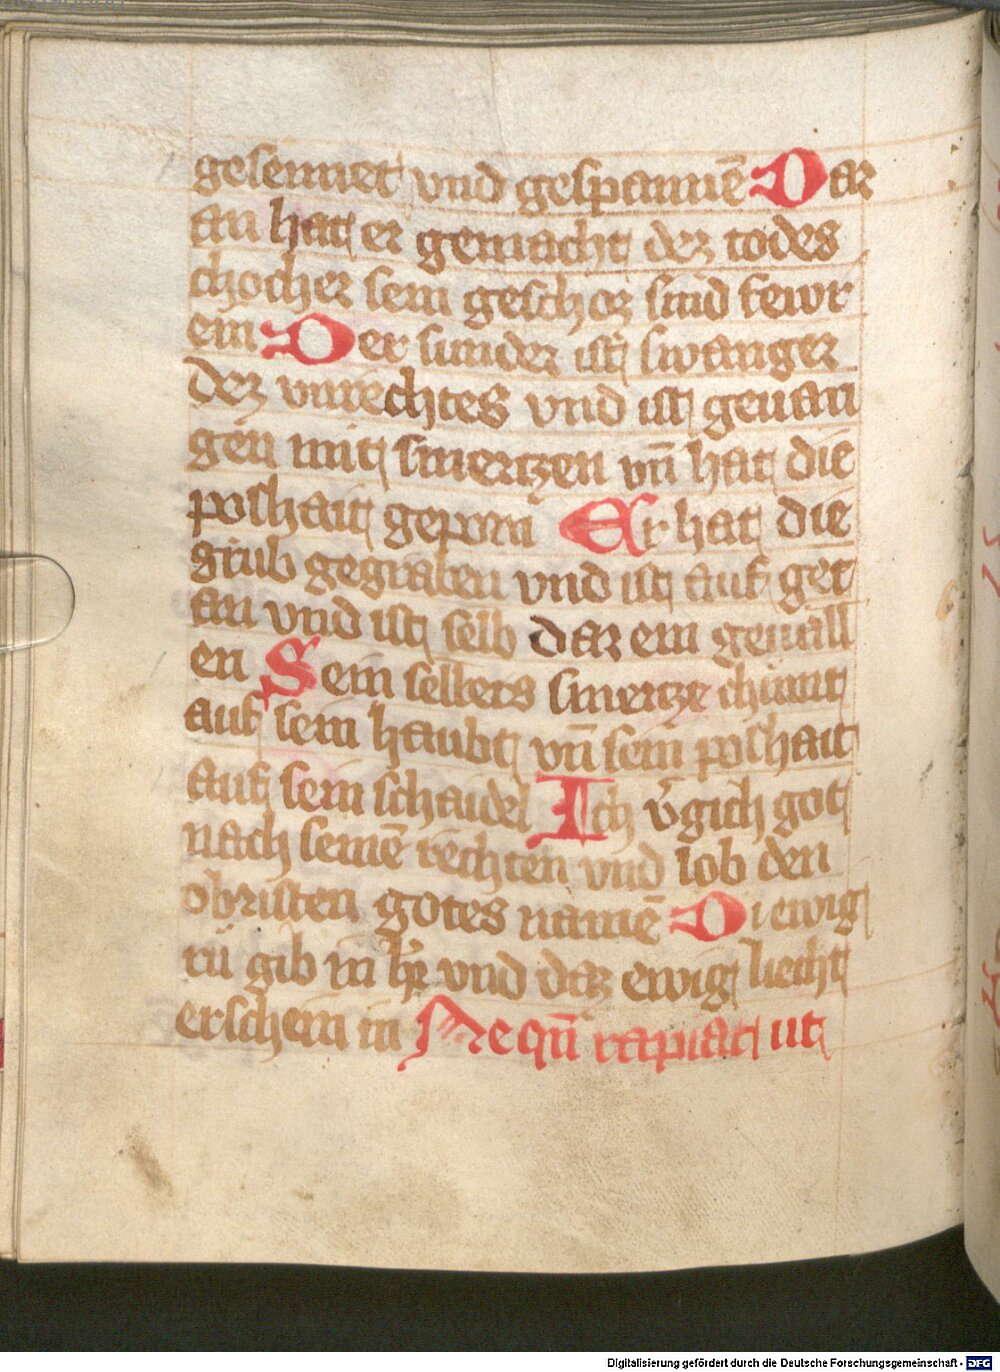 gesennet vnd gespannē Dar
an hat er gemacht dez todes
chocher sein geschoz sind fewr
ein Der sunder ist swanger
dez vnrechtes vnd ist geuan
gen mit smertzen vn̄ hat die
poshait geporn Er hat die
grub gegraben vnd ist auf get
an vnd ist selb daz ein geuall
en Sein selbers smertze chumt
auf sein haubt vn̄ sein poshait
auf sein schaidel Ich v̄gich got
nach seinē rechten vnd lob den
obristen gotes namē Di ewig
rů gib in h̄r vnd daz ewig liecht
erschein in Ne qn̄ rapiat ut
Digitalisierung gefördert durch die Deutsche Forschungsgemeinschaft - DFG